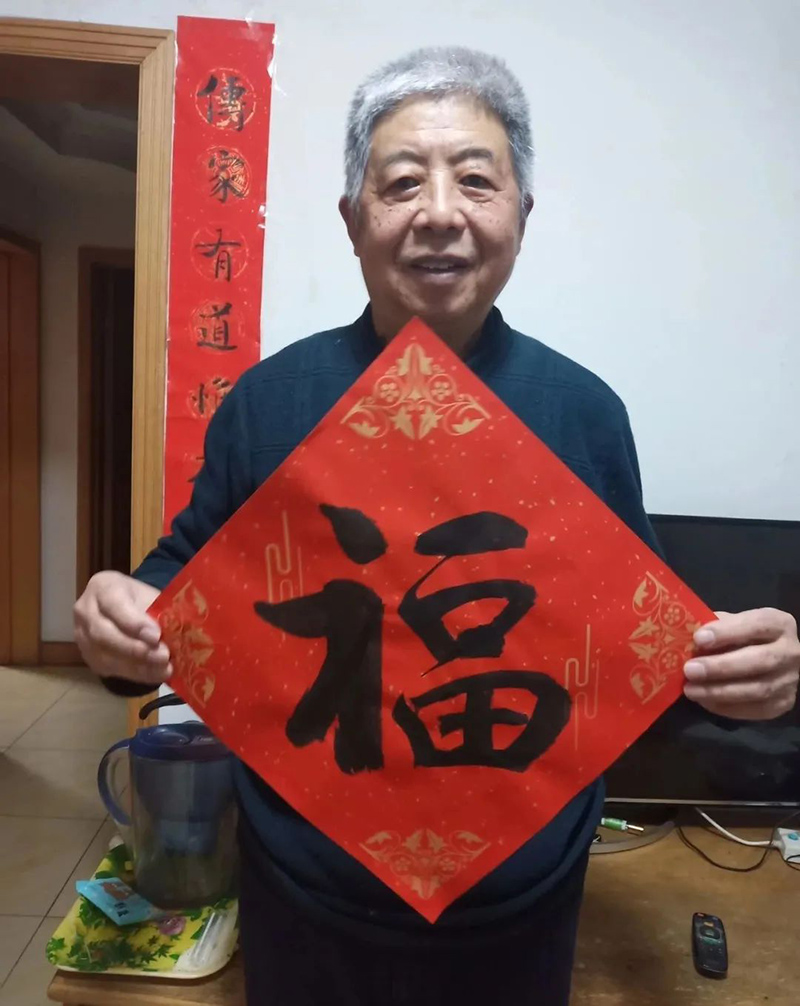 傳家有道惟
福